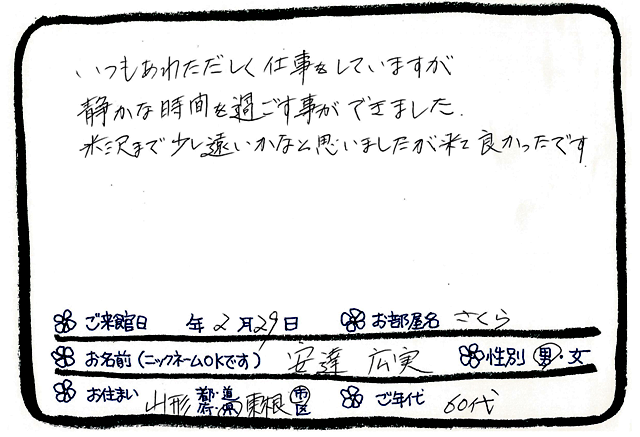 いつもあわただしく仕事をしていますが
静かな時間を過ごす事ができました.
米沢まで少し遠いかなと思いましたが来て良かったです
ご来館日 年 2月29日 お部屋名 さくら
お名前(ニックネームOKです) 安達 広実 性別 男・女
お住まい 山形 都・道・府・県 東根 市・区 ご年代 60代